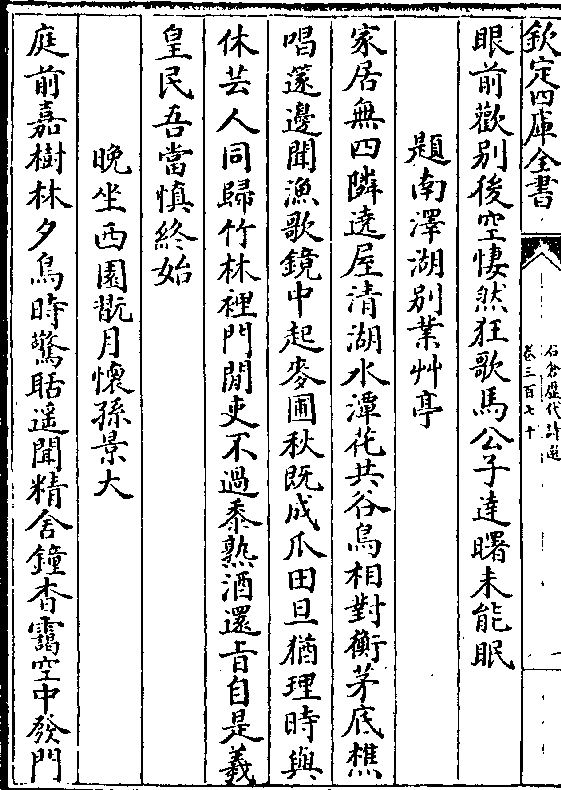 欽定四庫全書
石倉歷代詩選
卷三百七十
眼前歡别後空悽然狂歌馬公子達曙未能眠
題南澤湖别業艸亭
家居無四隣遶屋清湖水潭花共谷鳥相對衡茅底樵
唱蘧邊聞漁歌鏡中起麥圃秋既成瓜田旦猶理時與
休芸人同歸竹林裡門閒吏不過黍熟酒還旨自是羲
皇民吾當慎終始
晚坐西園翫月懷孫景大
庭前嘉樹林夕鳥時驚聒遥聞精舍鐘杳靄空中發門